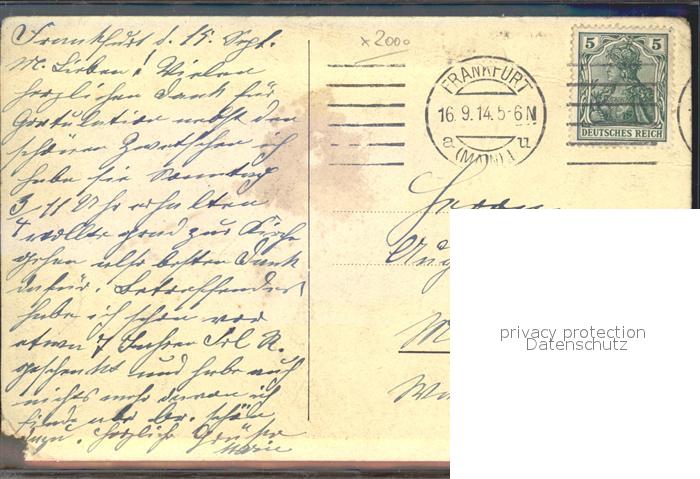 Frankfurt d. 15 Sept.
M. Lieben! Vielen
herzlichen Dank für
Gratulation nebst den
schönen Zwetschen ich
habe sie Sonntag
3/4 11 Uhr erhalten
wollte grad zur Kirche
gehen also besten Dank
dafür. Betreffendes
habe ich schon vor
etwa 7 Jahren Frl A.
geschenkt und habe auch
nichts mehr davon ich
finde aber
dazu. herzliche Grüße
Marie
x2000
FRANKFURT
16.9.14.5-6N
a u
(MAIN) 1
5 5
DEUTSCHES REICH
Herrn
privacy protection
Datenschutz